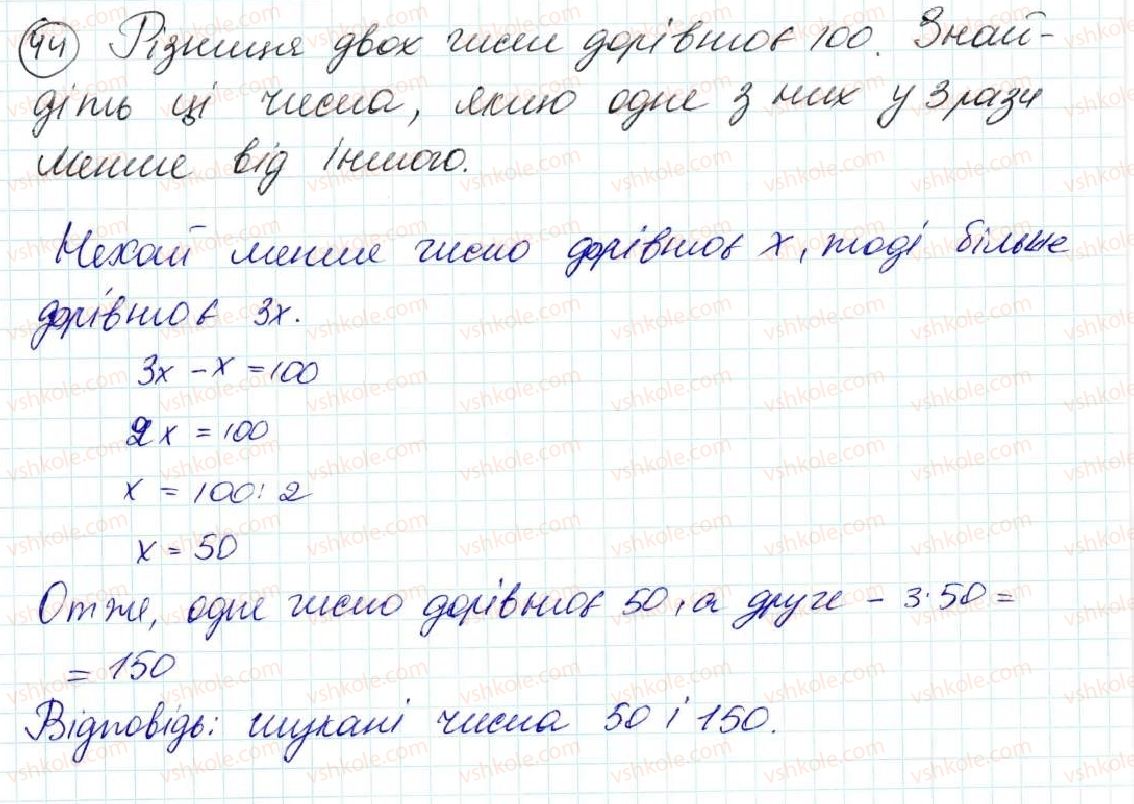 44 Різниця двох чисел дорівнює 100. Знай-
діть ці числа, якщо одне з них у 3 рази
менше від іншого.
Нехай менше число дорівнює x, тоді більше
дорівнює 3x.
3x - x = 100
2x = 100
x = 100 : 2
x = 50
Отже, одне число дорівнює 50, а друге - 3·50 =
= 150
Відповідь: шукані числа 50 і 150.